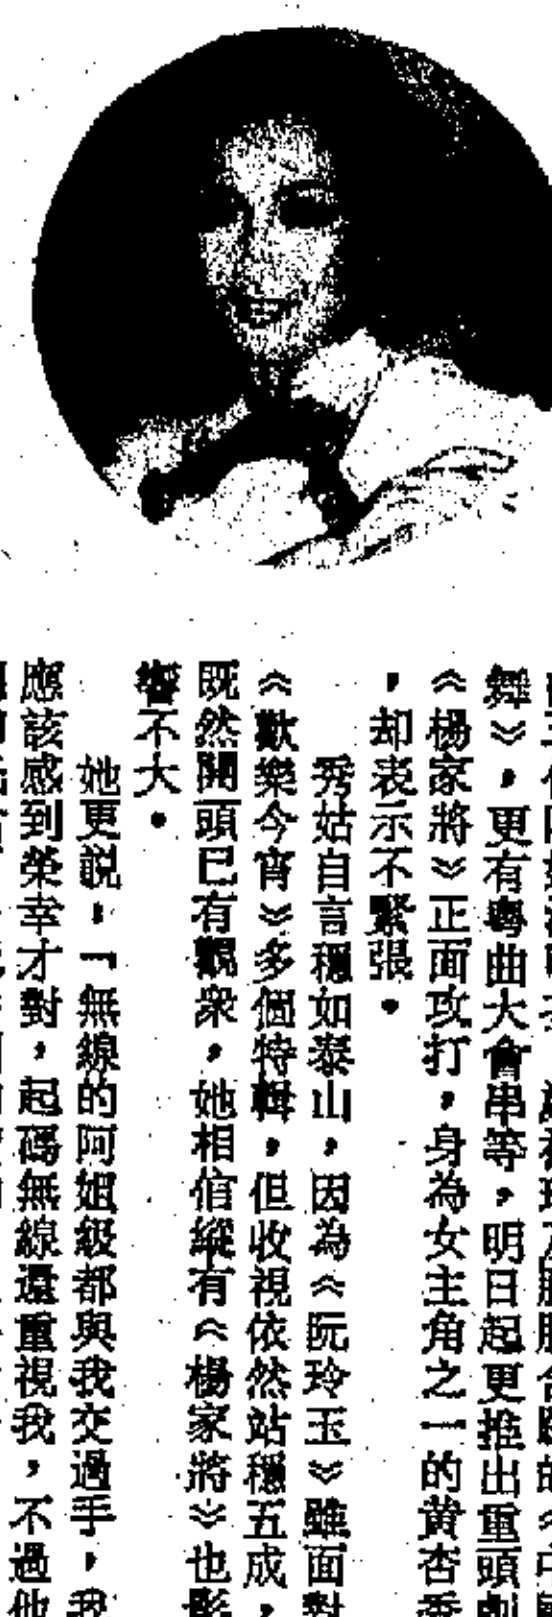 舞》，更有粵曲大會串等，明日起更推出重頭劇
《楊家將》正面攻打，身為女主角之一的黃杏秀
，却表示不緊張。
秀姑自言穩如泰山，因為《阮玲玉》雖面對
《歡樂今宵》多個特輯，但收視依然站穩五成，
既然開頭已有觀衆，她相信縱有《楊家將》也影
響不大。
她更説，「無線的阿姐級都與我交過手，我
應該感到榮幸才對，起碼無線還重視我，不過他